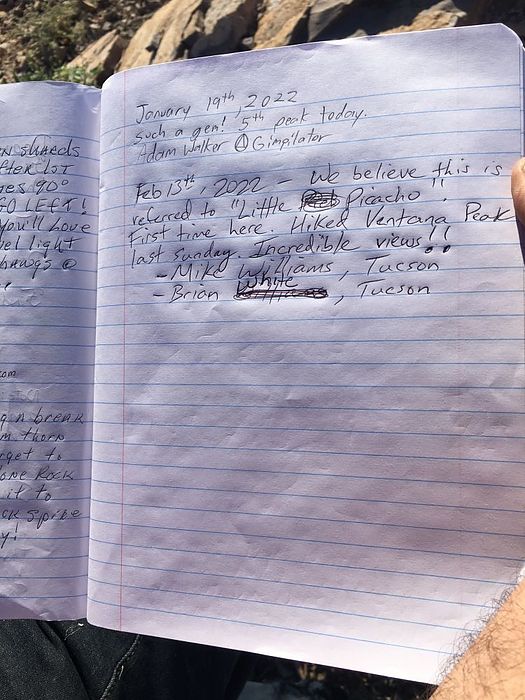 N SHREDS
AFTER LOT
90°
GO LEFT!
YOU'LL LOVE
light
January 19th, 2022
such a gem! 5th peak today.
Adam Walker Ⓐ Gimpilator
Feb 13th, 2022 - We believe this is
referred to "Little Picacho".
First time here. Hiked Ventana Peak
last sunday. Incredible views!!
- Mike Williams, Tucson
- Brian White, Tucson
com
a break
thorn
get to
one Rock
it to
ck spike
y!